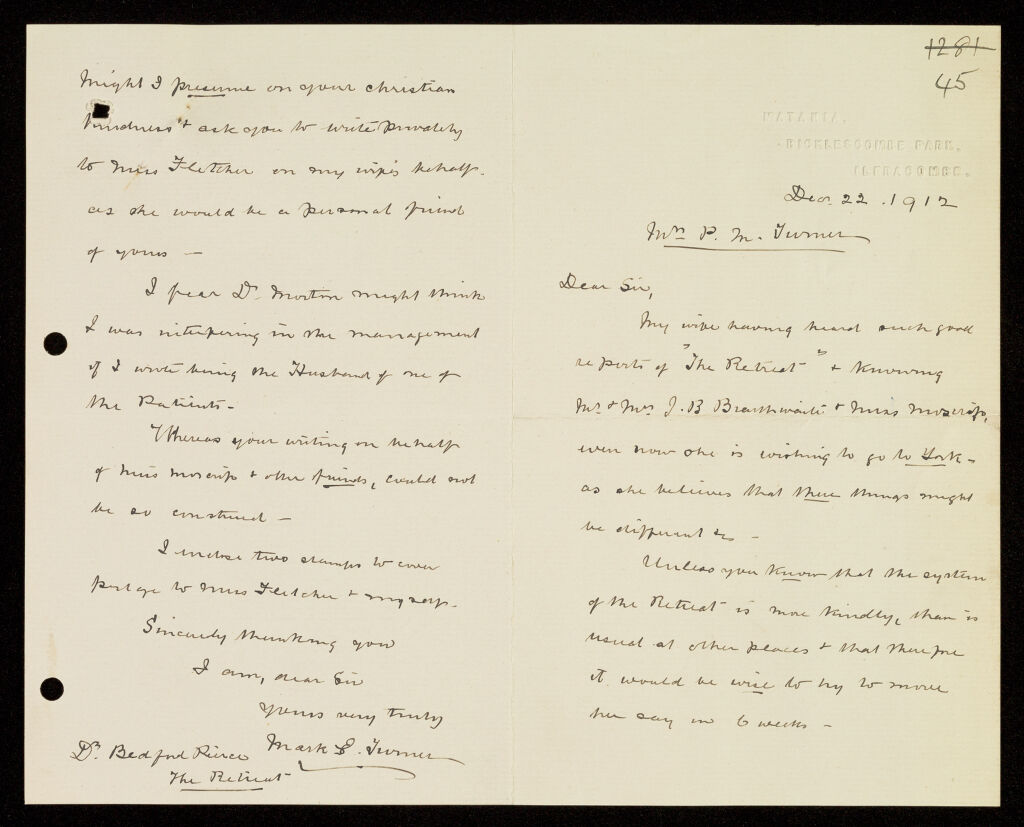 1281
45
BICKLESCOMBE PARK,
ILFRACOMBE.
Dec. 22. 1912
Mrs P. M. Turner
Dear Sir,
My wife having heard such good
reports of "The Retreat" & knowing
Mr & Mrs J. B Braithwaite & Miss Moscrip,
even now she is wishing to go to York -
as she believes that there things might
be different &c -
Unless you know that the system
of the Retreat is more kindly, than is
usual at other places & that therefore
it would be wise to try to move
her say in 6 weeks -
Might I presume on your christian
kindness & ask you to write privately
to Miss Fletcher on my wife's behalf.
as she would be a personal friend
of yours -
I fear Dr Morton might think
I was interfering in the management
if I wrote being the Husband of one of
the Patients -
Whereas your writing on behalf
of Miss Moscrip & other friends, could not
be so construed -
I inclose two stamps to cover
postage to Miss Fletcher & myself -
Sincerely thanking you
I am, dear Sir
Yours very truly
Mark S. Turner
Dr Bedford Pierce
The Retreat